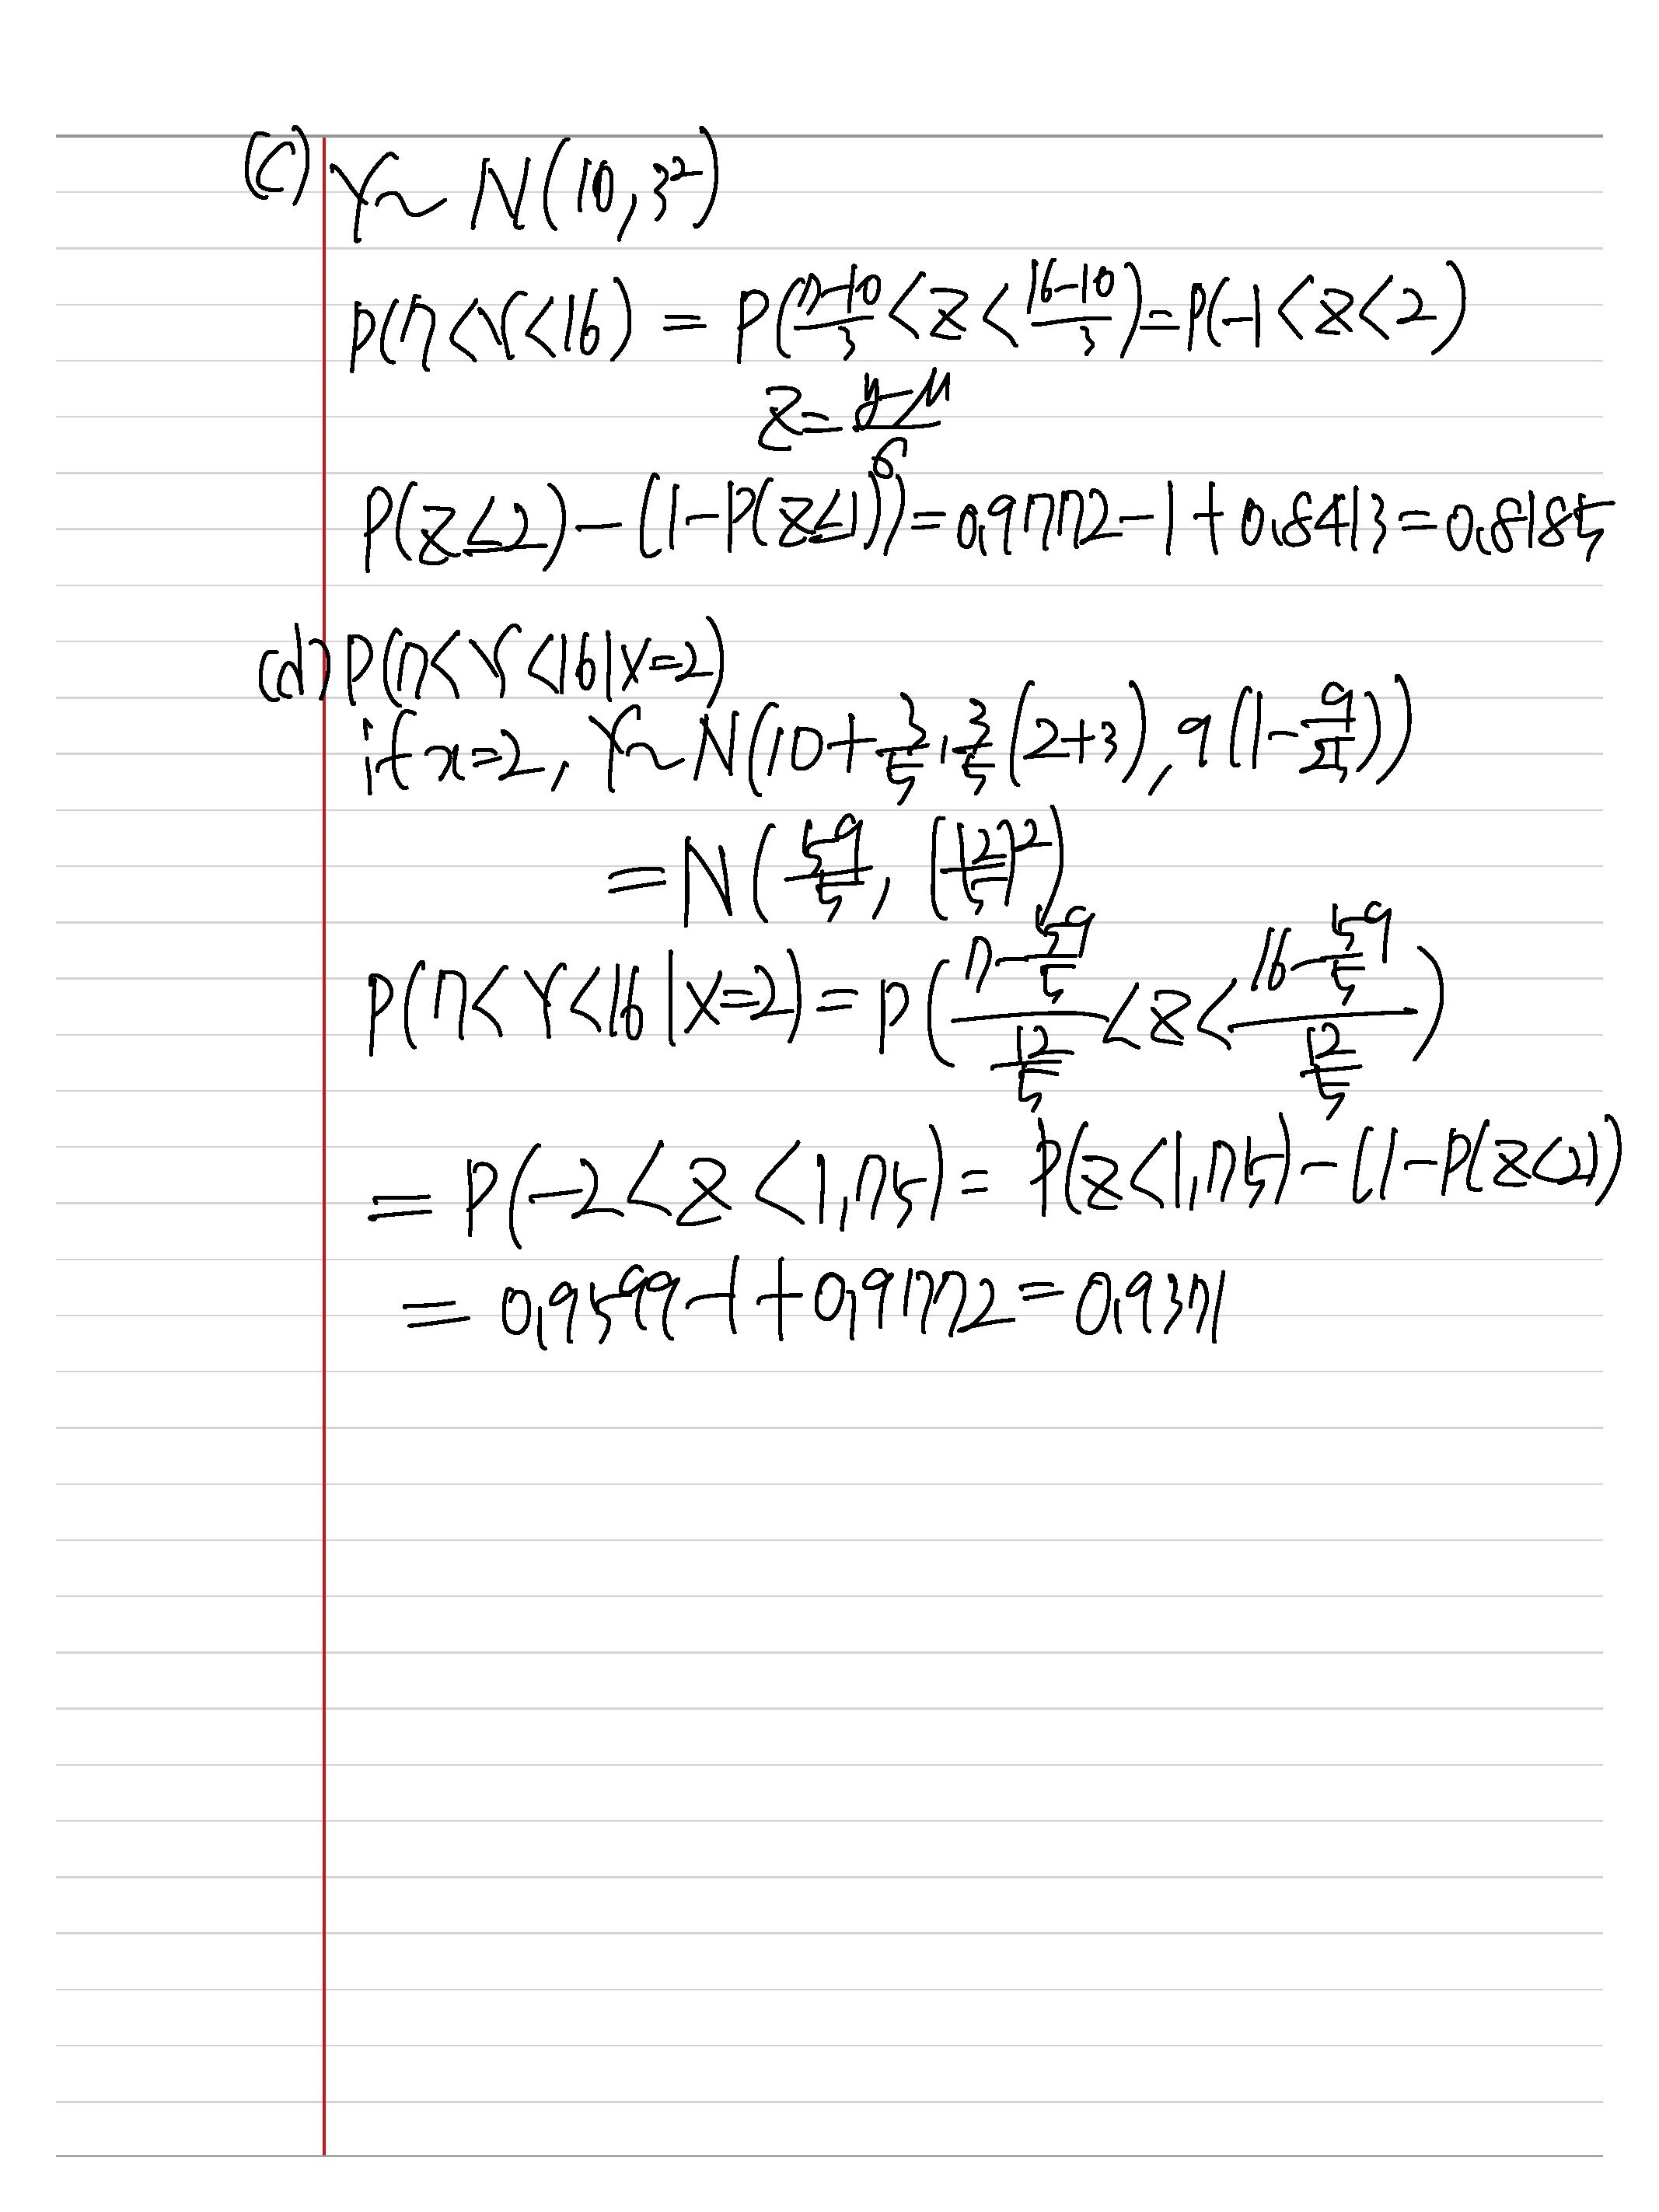 (c) Y~N(10,3²)
P(7<Y<16) = P((7-10)/3<z<(16-10)/3)=P(-1<z<2)
z=(y-μ)/σ
P(z≤2)-(1-P(z≤1))=0.9772-1+0.8413=0.8185
(d) P(7<Y<16|X=2)
if x=2, Y~N(10+3/5·3/5(2+3), 9(1-9/25))
=N(59/5, (12/5)²)
P(7<Y<16|X=2)=P((7-59/5)/(12/5)<z<(16-59/5)/(12/5))
=P(-2<z<1.75)= P(z<1.75)-(1-P(z<2))
= 0.9599-1+0.9772=0.9371